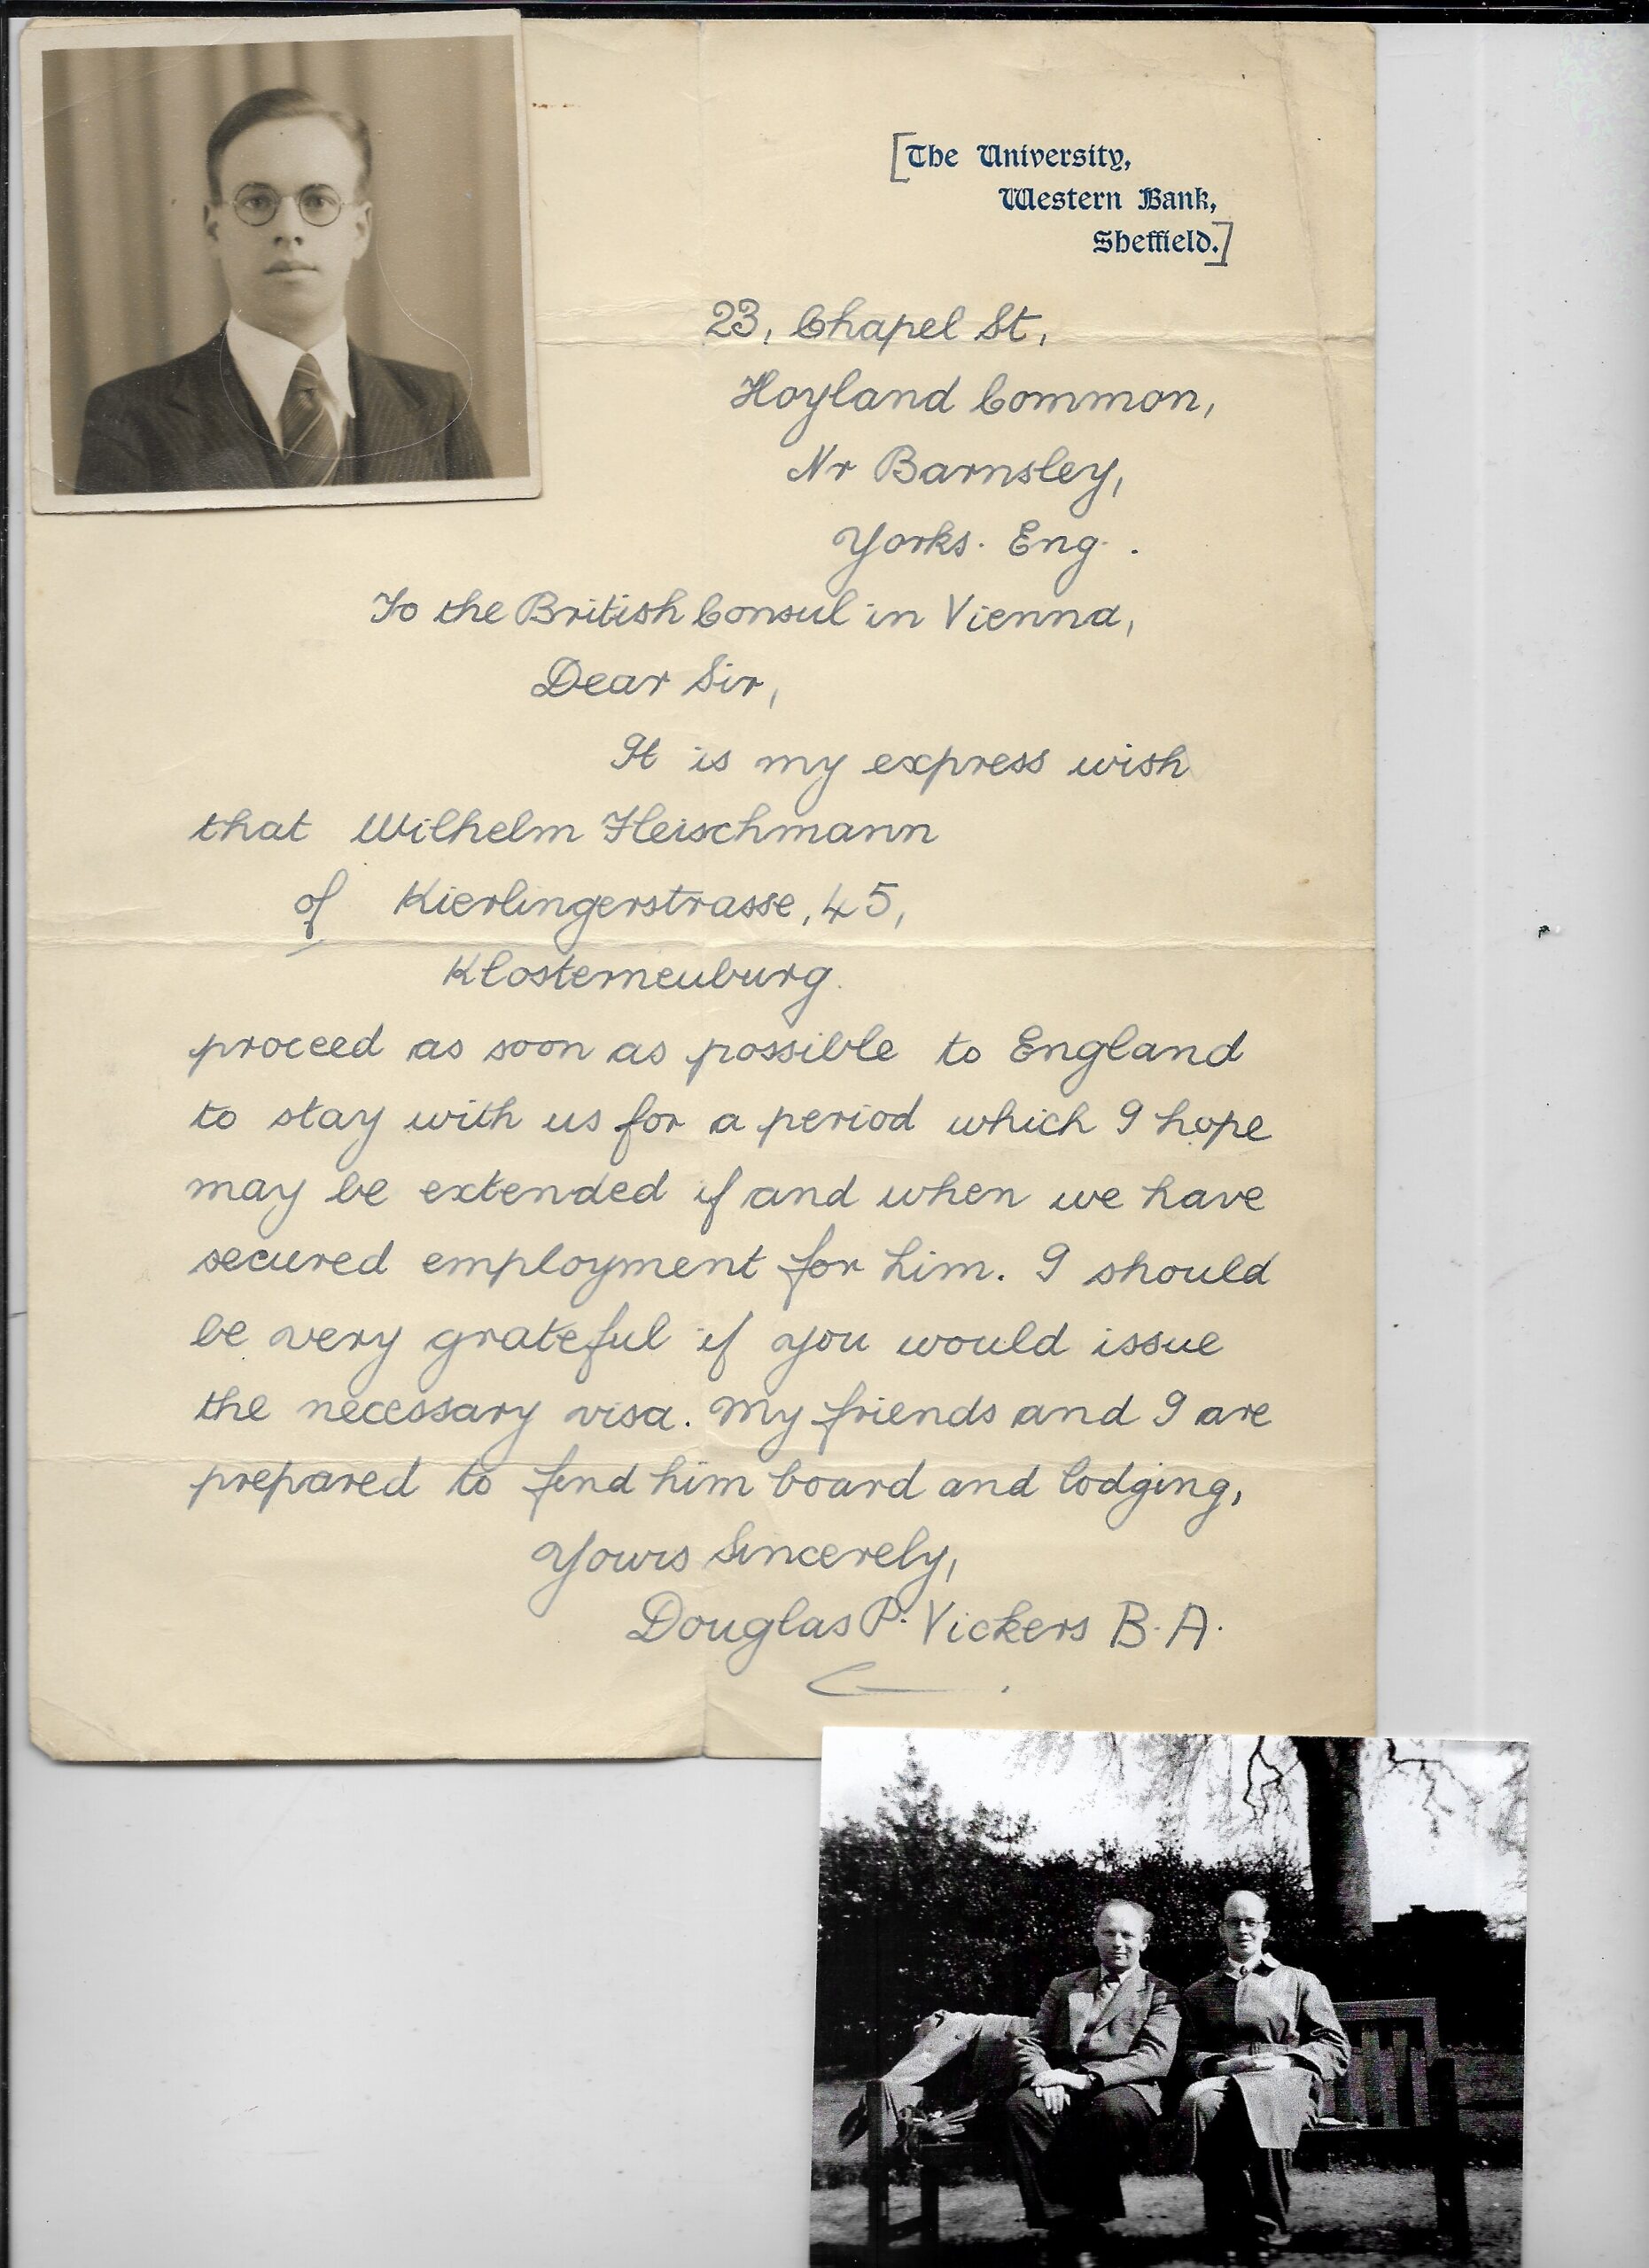 [The University,
Western Bank,
Sheffield.]
23, Chapel St,
Hoyland Common,
Nr Barnsley,
Yorks. Eng.
To the British Consul in Vienna,
Dear Sir,
It is my express wish
that Wilhelm Fleischmann
of Kierlingerstrasse, 45,
Klosterneuburg.
proceed as soon as possible to England
to stay with us for a period which I hope
may be extended if and when we have
secured employment for him. I should
be very grateful if you would issue
the necessary visa. My friends and I are
prepared to find him board and lodging,
Yours Sincerely,
Douglas P. Vickers B.A.